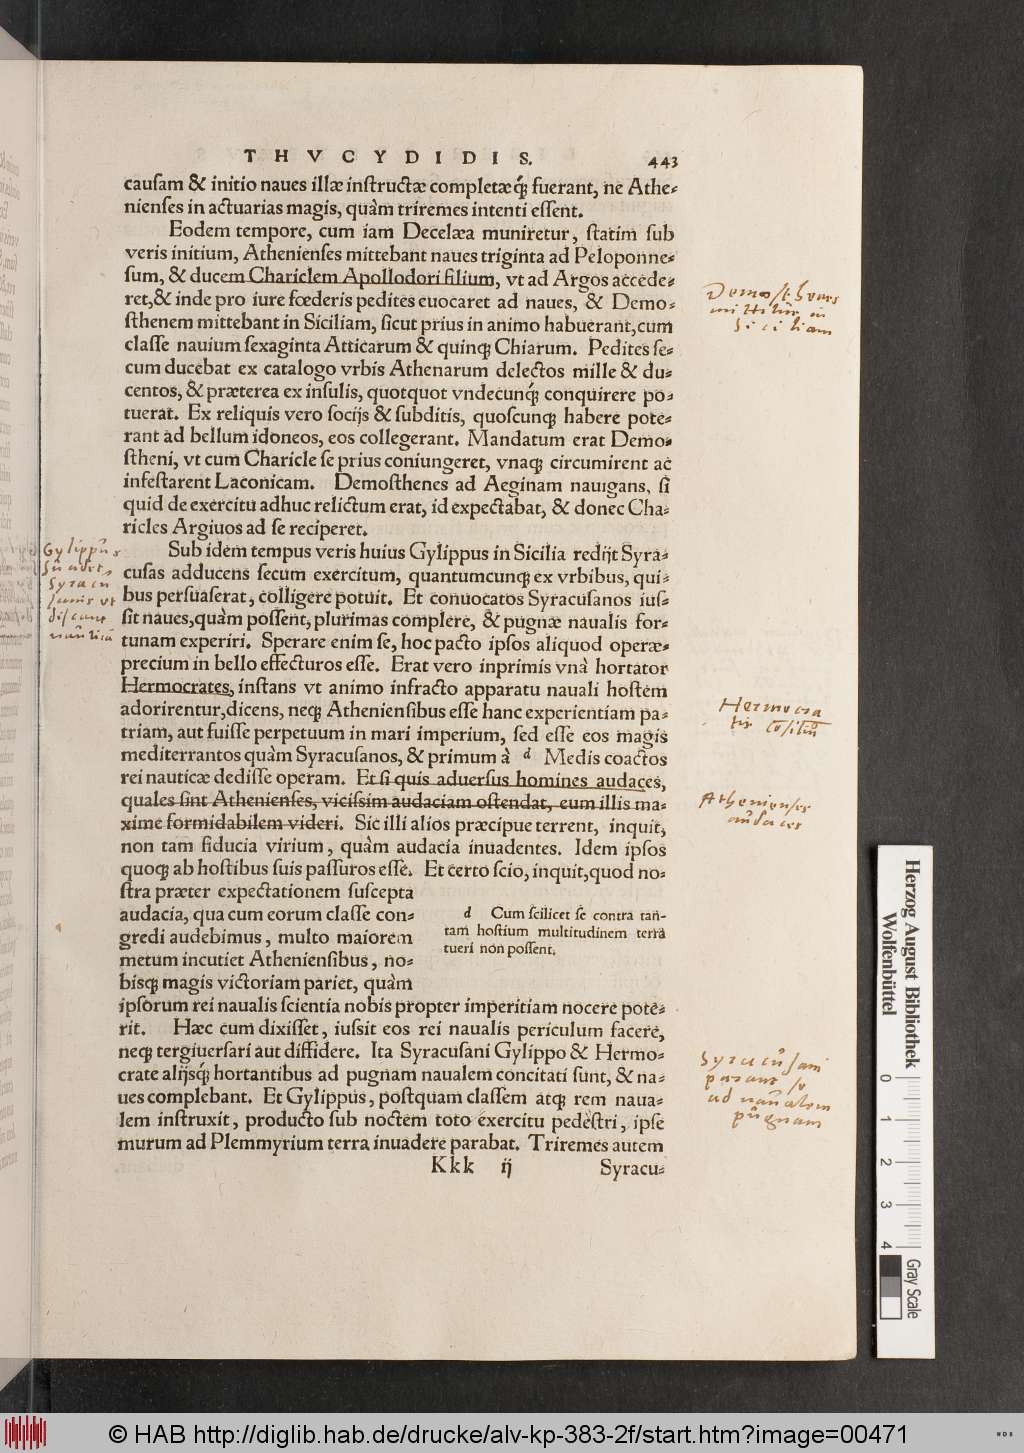 THVCYDIDIS. 443
cauſam & initio naues illæ inſtructæ completæq́; fuerant, ne Athe-
nienſes in actuarias magis, quàm triremes intenti eſſent.
Eodem tempore, cum iam Decelæa muniretur, ſtatim ſub
veris initium, Athenienſes mittebant naues triginta ad Peloponne-
ſum, & ducem Chariclem Apollodori filium, vt ad Argos accede-
ret, & inde pro iure fœderis pedites euocaret ad naues, & Demo-
ſthenem mittebant in Siciliam, ſicut prius in animo habuerant, cum
claſſe nauium ſexaginta Atticarum & quinq; Chiarum. Pedites ſe-
cum ducebat ex catalogo vrbis Athenarum delectos mille & du-
centos, & præterea ex inſulis, quotquot vndecunq́; conquirere po-
tuerat. Ex reliquis vero ſocijs & ſubditis, quoſcunq; habere pote-
rant ad bellum idoneos, eos collegerant. Mandatum erat Demo-
ſtheni, vt cum Charicle ſe prius coniungeret, vnaq; circumirent ac
infeſtarent Laconicam. Demoſthenes ad Aeginam nauigans, ſi
quid de exercitu adhuc relictum erat, id expectabat, & donec Cha-
ricles Argiuos ad ſe reciperet.
Sub idem tempus veris huius Gylippus in Sicilia redijt Syra-
cuſas adducens ſecum exercitum, quantumcunq; ex vrbibus, qui-
bus perſuaſerat, colligere potuit. Et conuocatos Syracuſanos iuſ-
ſit naues, quàm poſſent, plurimas complere, & pugnæ naualis for-
tunam experiri. Sperare enim ſe, hoc pacto ipſos aliquod operæ-
precium in bello effecturos eſſe. Erat vero inprimis vnà hortator
Hermocrates, inſtans vt animo infracto apparatu nauali hoſtem
adorirentur, dicens, neq; Athenienſibus eſſe hanc experientiam pa-
triam, aut fuiſſe perpetuum in mari imperium, ſed eſſe eos magis
mediterrantos quàm Syracuſanos, & primum à d Medis coactos
rei nauticæ dediſſe operam. Et ſi quis aduerſus homines audaces,
quales ſint Athenienſes, viciſsim audaciam oſtendat, eum illis ma-
xime formidabilem videri. Sic illi alios præcipue terrent, inquit,
non tam fiducia virium, quàm audacia inuadentes. Idem ipſos
quoq; ab hoſtibus ſuis paſſuros eſſe. Et certo ſcio, inquit, quod no-
ſtra præter expectationem ſuſcepta
audacia, qua cum eorum claſſe con-
gredi audebimus, multo maiorem
metum incutiet Athenienſibus, no-
bisq; magis victoriam pariet, quàm
d Cum ſcilicet ſe contra tan-
tam hoſtium multitudinem terra
tueri non poſſent.
ipſorum rei naualis ſcientia nobis propter imperitiam nocere pote-
rit. Hæc cum dixiſſet, iuſsit eos rei naualis periculum facere,
neq; tergiuerſari aut diffidere. Ita Syracuſani Gylippo & Hermo-
crate alijsq́; hortantibus ad pugnam naualem concitati ſunt, & na-
ues complebant. Et Gylippus, poſtquam claſſem atq; rem naua-
lem inſtruxit, producto ſub noctem toto exercitu pedeſtri, ipſe
murum ad Plemmyrium terra inuadere parabat. Triremes autem
Kkk ij Syracu-
Demosthenes
mittitur in
Siciliam
Gylippus
suadet
Syracu
sanis vt
discant
nauticã
Hermocra
tis Cõsiliũ
Athenienses
audaces
Syracusani
parant se
ad naualem
pugnam
Herzog August Bibliothek
Wolfenbüttel
0 1 2 3 4
Gray Scale
© HAB http://diglib.hab.de/drucke/alv-kp-383-2f/start.htm?image=00471